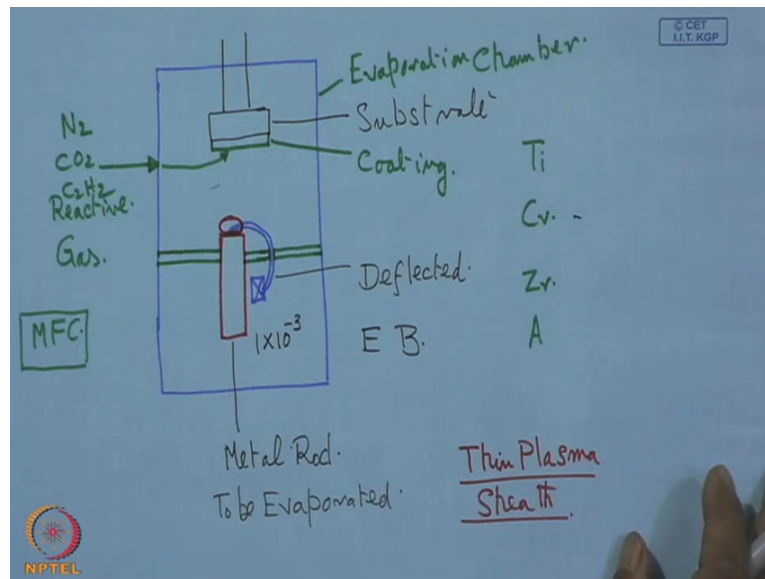 © CET
I.I.T. KGP
Evaporation Chamber.
Substrate
Coating.
N2
CO2
C2H2
Reactive.
Gas.
MFC.
Ti
Cr.
Zr.
A
Deflected.
E B.
1×10⁻³
Metal Rod.
To be Evaporated.
Thin Plasma
Sheath.
NPTEL